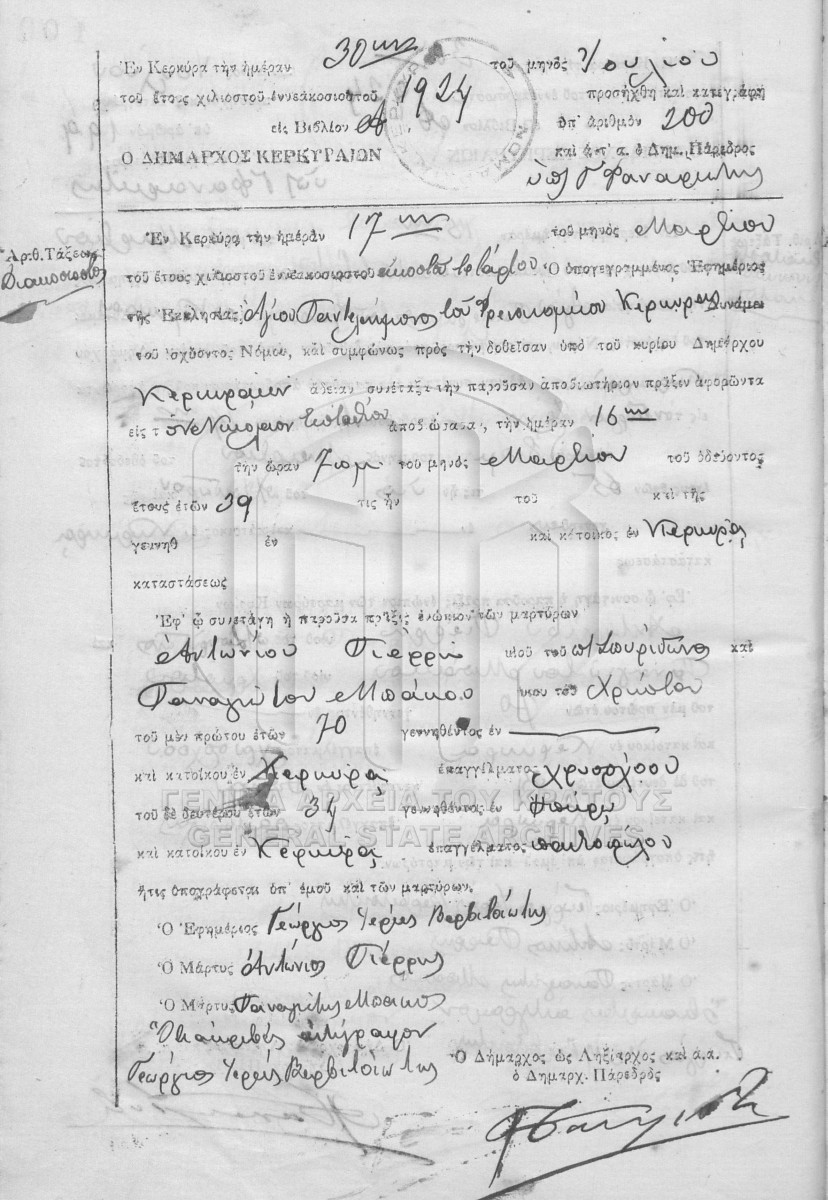 Ἐν Κερκύρᾳ τὴν ἡμέραν 30ην τοῦ μηνὸς Ἰουλίου
τοῦ ἔτους χιλιοστοῦ ἐννεακοσιοστοῦ 1924 προσήχθη καὶ κατεγράφη
εἰς Βιβλίον ὑπ' ἀριθμὸν 200
Ο ΔΗΜΑΡΧΟΣ ΚΕΡΚΥΡΑΙΩΝ καὶ ἀ.τ'ἀ. ὁ Δημ. Πάρεδρος
Ἐν Κερκύρᾳ τὴν ἡμέραν 17ην τοῦ μηνὸς Μαρτίου
Ἀριθ. Τάξεως
Διακοσιοστὸς
τοῦ ἔτους χιλιοστοῦ ἐννεακοσιοστοῦ εἰκοστοῦ τετάρτου Ὁ ὑπογεγραμμένος Ἐφημέριος
τῆς Ἐκκλησίας Ἁγίου Παντελεήμονος τοῦ Φρενοκομείου Κερκύρας Δυνάμει
τοῦ ἰσχύοντος Νόμου, καὶ συμφώνως πρὸς τὴν δοθεῖσαν ὑπὸ τοῦ κυρίου Δημάρχου
Κερκυραίων ἄδειαν συνέταξα τὴν παροῦσαν ἀποβιωτήριον πρᾶξιν ἀφορῶντα
εἰς τὸν Νικόλαον Εὐσταθίου ἀποβιώσαντα, τὴν ἡμέραν 16ην
τὴν ὥραν 7 πμ τοῦ μηνὸς Μαρτίου τοῦ ὁδεύοντος
ἔτους ἐτῶν 39 τις ἦν τοῦ καὶ τῆς
γεννηθ ἐν καὶ κάτοικος ἐν Κερκύρᾳ
καταστάσεως
Ἐφ' ᾧ συνετάγη ἡ παροῦσα πρᾶξις ἐνώπιον τῶν μαρτύρων
Ἀντωνίου Πιέρρη υἱοῦ τοῦ π. Σπυρίδωνος καὶ
Παναγιώτου Μπάκου υἱοῦ τοῦ Χρήστου
τοῦ μὲν πρώτου ἐτῶν 70 γεννηθέντος ἐν
καὶ κατοίκου ἐν Κερκύρᾳ ἐπαγγέλματος χρυσοχόου
ΓΕΝΙΚΑ ΑΡΧΕΙΑ ΤΟΥ ΚΡΑΤΟΥΣ
τοῦ δὲ δευτέρου ἐτῶν 34 γεννηθέντος ἐν Ἠπείρῳ
GENERAL STATE ARCHIVES
καὶ κατοίκου ἐν Κερκύρᾳ ἐπαγγέλματος παντοπώλου
ἥτις ὑπογράφεται ὑπ' ἐμοῦ καὶ τῶν μαρτύρων.
Ὁ Ἐφημέριος Γεώργιος Ἱερεὺς Βερβιτσιώτης
Ὁ Μάρτυς Ἀντώνιος Πιέρρης
Ὁ Μάρτυς Παναγιώτης Μπάκος
Ὅτι ἀκριβὲς ἀντίγραφον
Γεώργιος Ἱερεὺς Βερβιτσιώτης
Ὁ Δήμαρχος ὡς Ληξίαρχος καὶ ἀ.ἀ.
ὁ Δημαρχ. Πάρεδρος